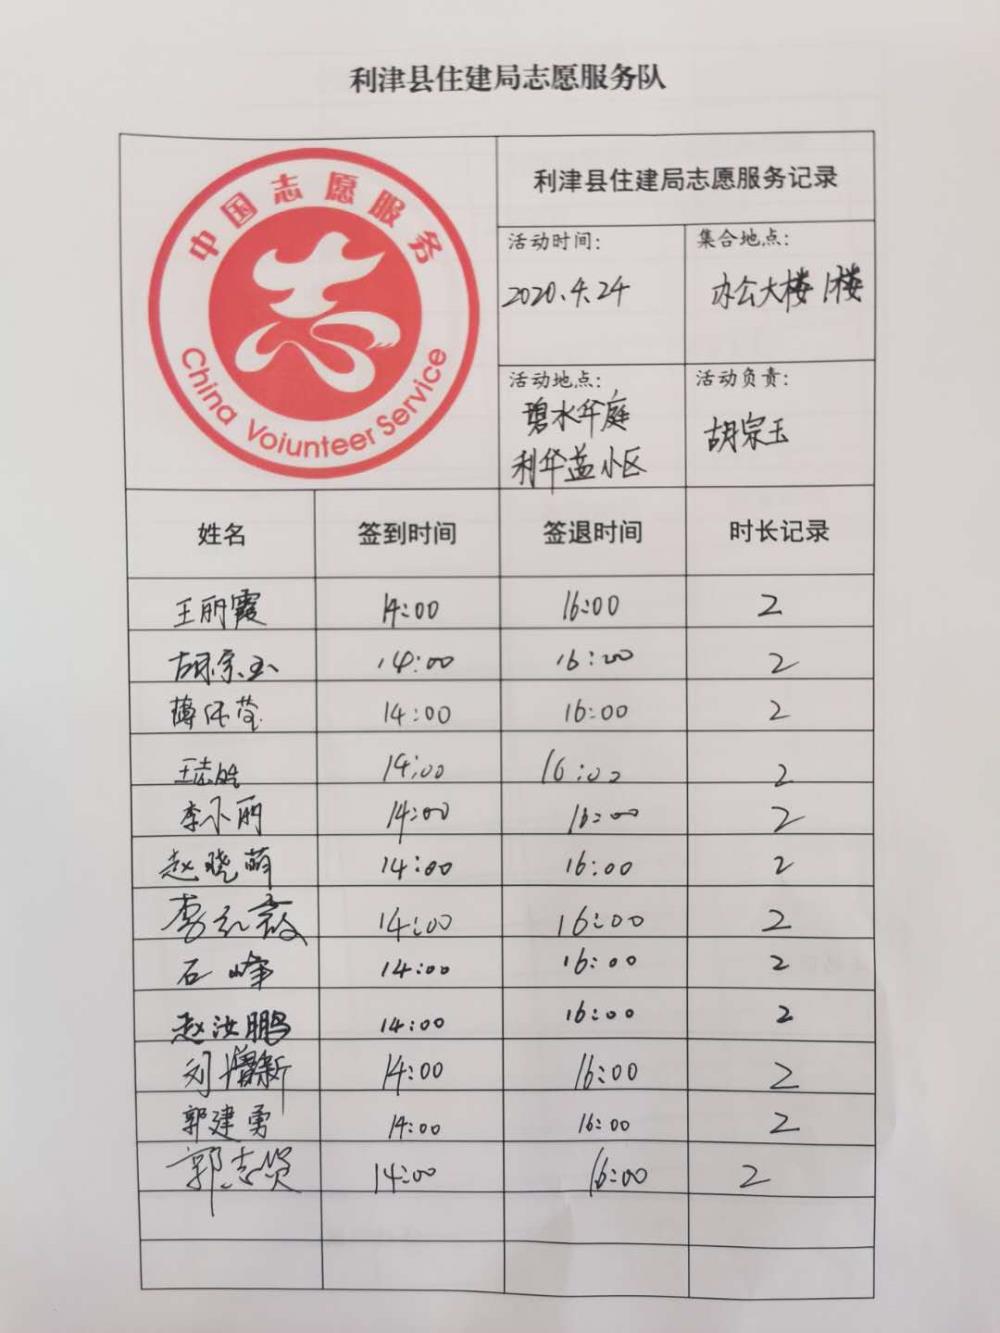 利津县住建局志愿服务队
中国志愿服务
China Voiunteer Service
利津县住建局志愿服务记录
活动时间: 集合地点:
2020.4.24 办公大楼1楼
活动地点: 活动负责:
碧水华庭 胡宗玉
利华益小区
姓名 签到时间 签退时间 时长记录
王丽霞 14:00 16:00 2
胡宗玉 14:00 16:00 2
14:00 16:00 2
王志胜 14:00 16:00 2
李 丽 14:00 16:00 2
赵晓萌 14:00 16:00 2
李红霞 14:00 16:00 2
石峰 14:00 16:00 2
赵汝鹏 14:00 16:00 2
刘 新 14:00 16:00 2
郭建勇 14:00 16:00 2
郭志贤 14:00 16:00 2